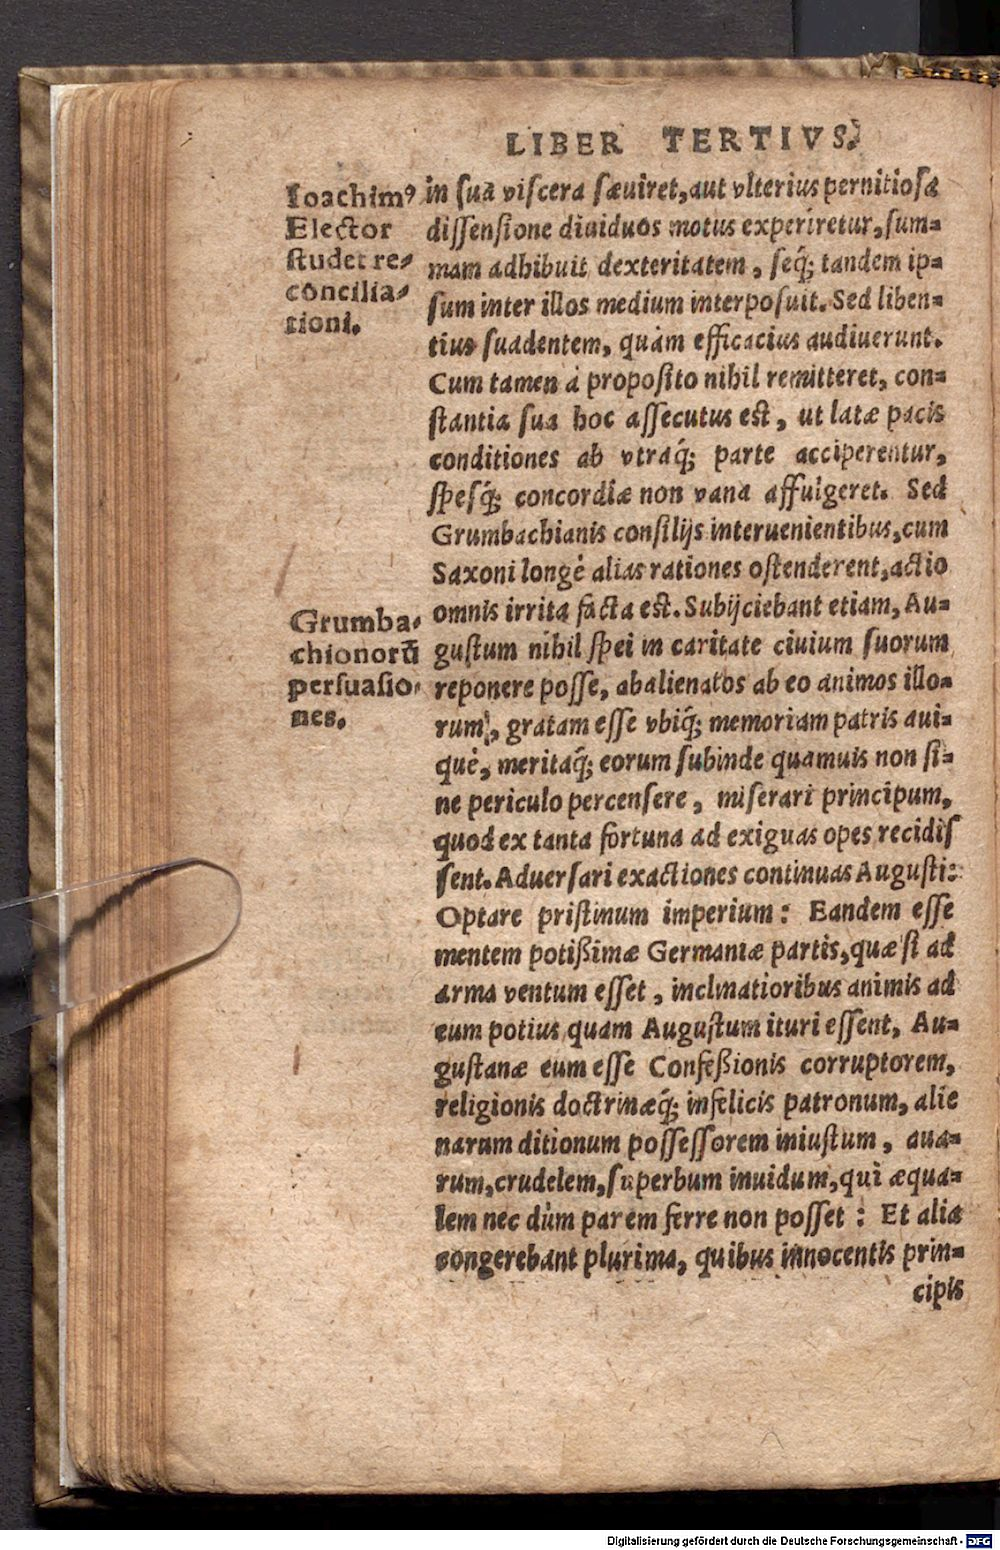 LIBER TERTIVS.
Ioachimꝰ
Elector
studet re-
concilia-
tioni.
in suã viscera sæuiret, aut vlterius pernitiosa
dissensione diuiduos motus experiretur, sum-
mam adhibuit dexteritatem, seq́; tandem ip-
sum inter illos medium interposuit. Sed liben-
tius suadentem, quàm efficacius audiuerunt.
Cum tamen à proposito nihil remitteret, con-
stantia sua hoc assecutus est, ut latæ pacis
conditiones ab vtraq́; parte acciperentur,
spesq́; concordiæ non vana affulgeret. Sed
Grumbachianis consilijs interuenientibus, cum
Saxoni longè alias rationes ostenderent, actio
omnis irrita facta est. Subijciebant etiam, Au-
gustum nihil spei in caritate ciuium suorum
reponere posse, abalienatos ab eo animos illo-
rum, gratam esse vbiq́; memoriam patris aui-
què, meritaq́; eorum subinde quamuis non si-
ne periculo percensere, miserari principum,
quod ex tanta fortuna ad exiguas opes recidis
sent. Aduersari exactiones continuas Augusti:
Optare pristinum imperium: Eandem esse
mentem potißimæ Germaniæ partis, quæ si ad
arma ventum esset, inclinatioribus animis ad
eum potius quam Augustum ituri essent, Au-
gustanæ eum esse Confeßionis corruptorem,
religionis doctrinæq́; infelicis patronum, alie
narum ditionum possessorem iniustum, aua-
rum, crudelem, superbum inuidum, qui æqua-
lem nec dùm parem ferre non posset: Et alia
congerebant plurima, quibus innocentis prin-
cipis
Grumba-
chionorũ
persuasio-
nes.
Digitalisierung gefördert durch die Deutsche Forschungsgemeinschaft - DFG